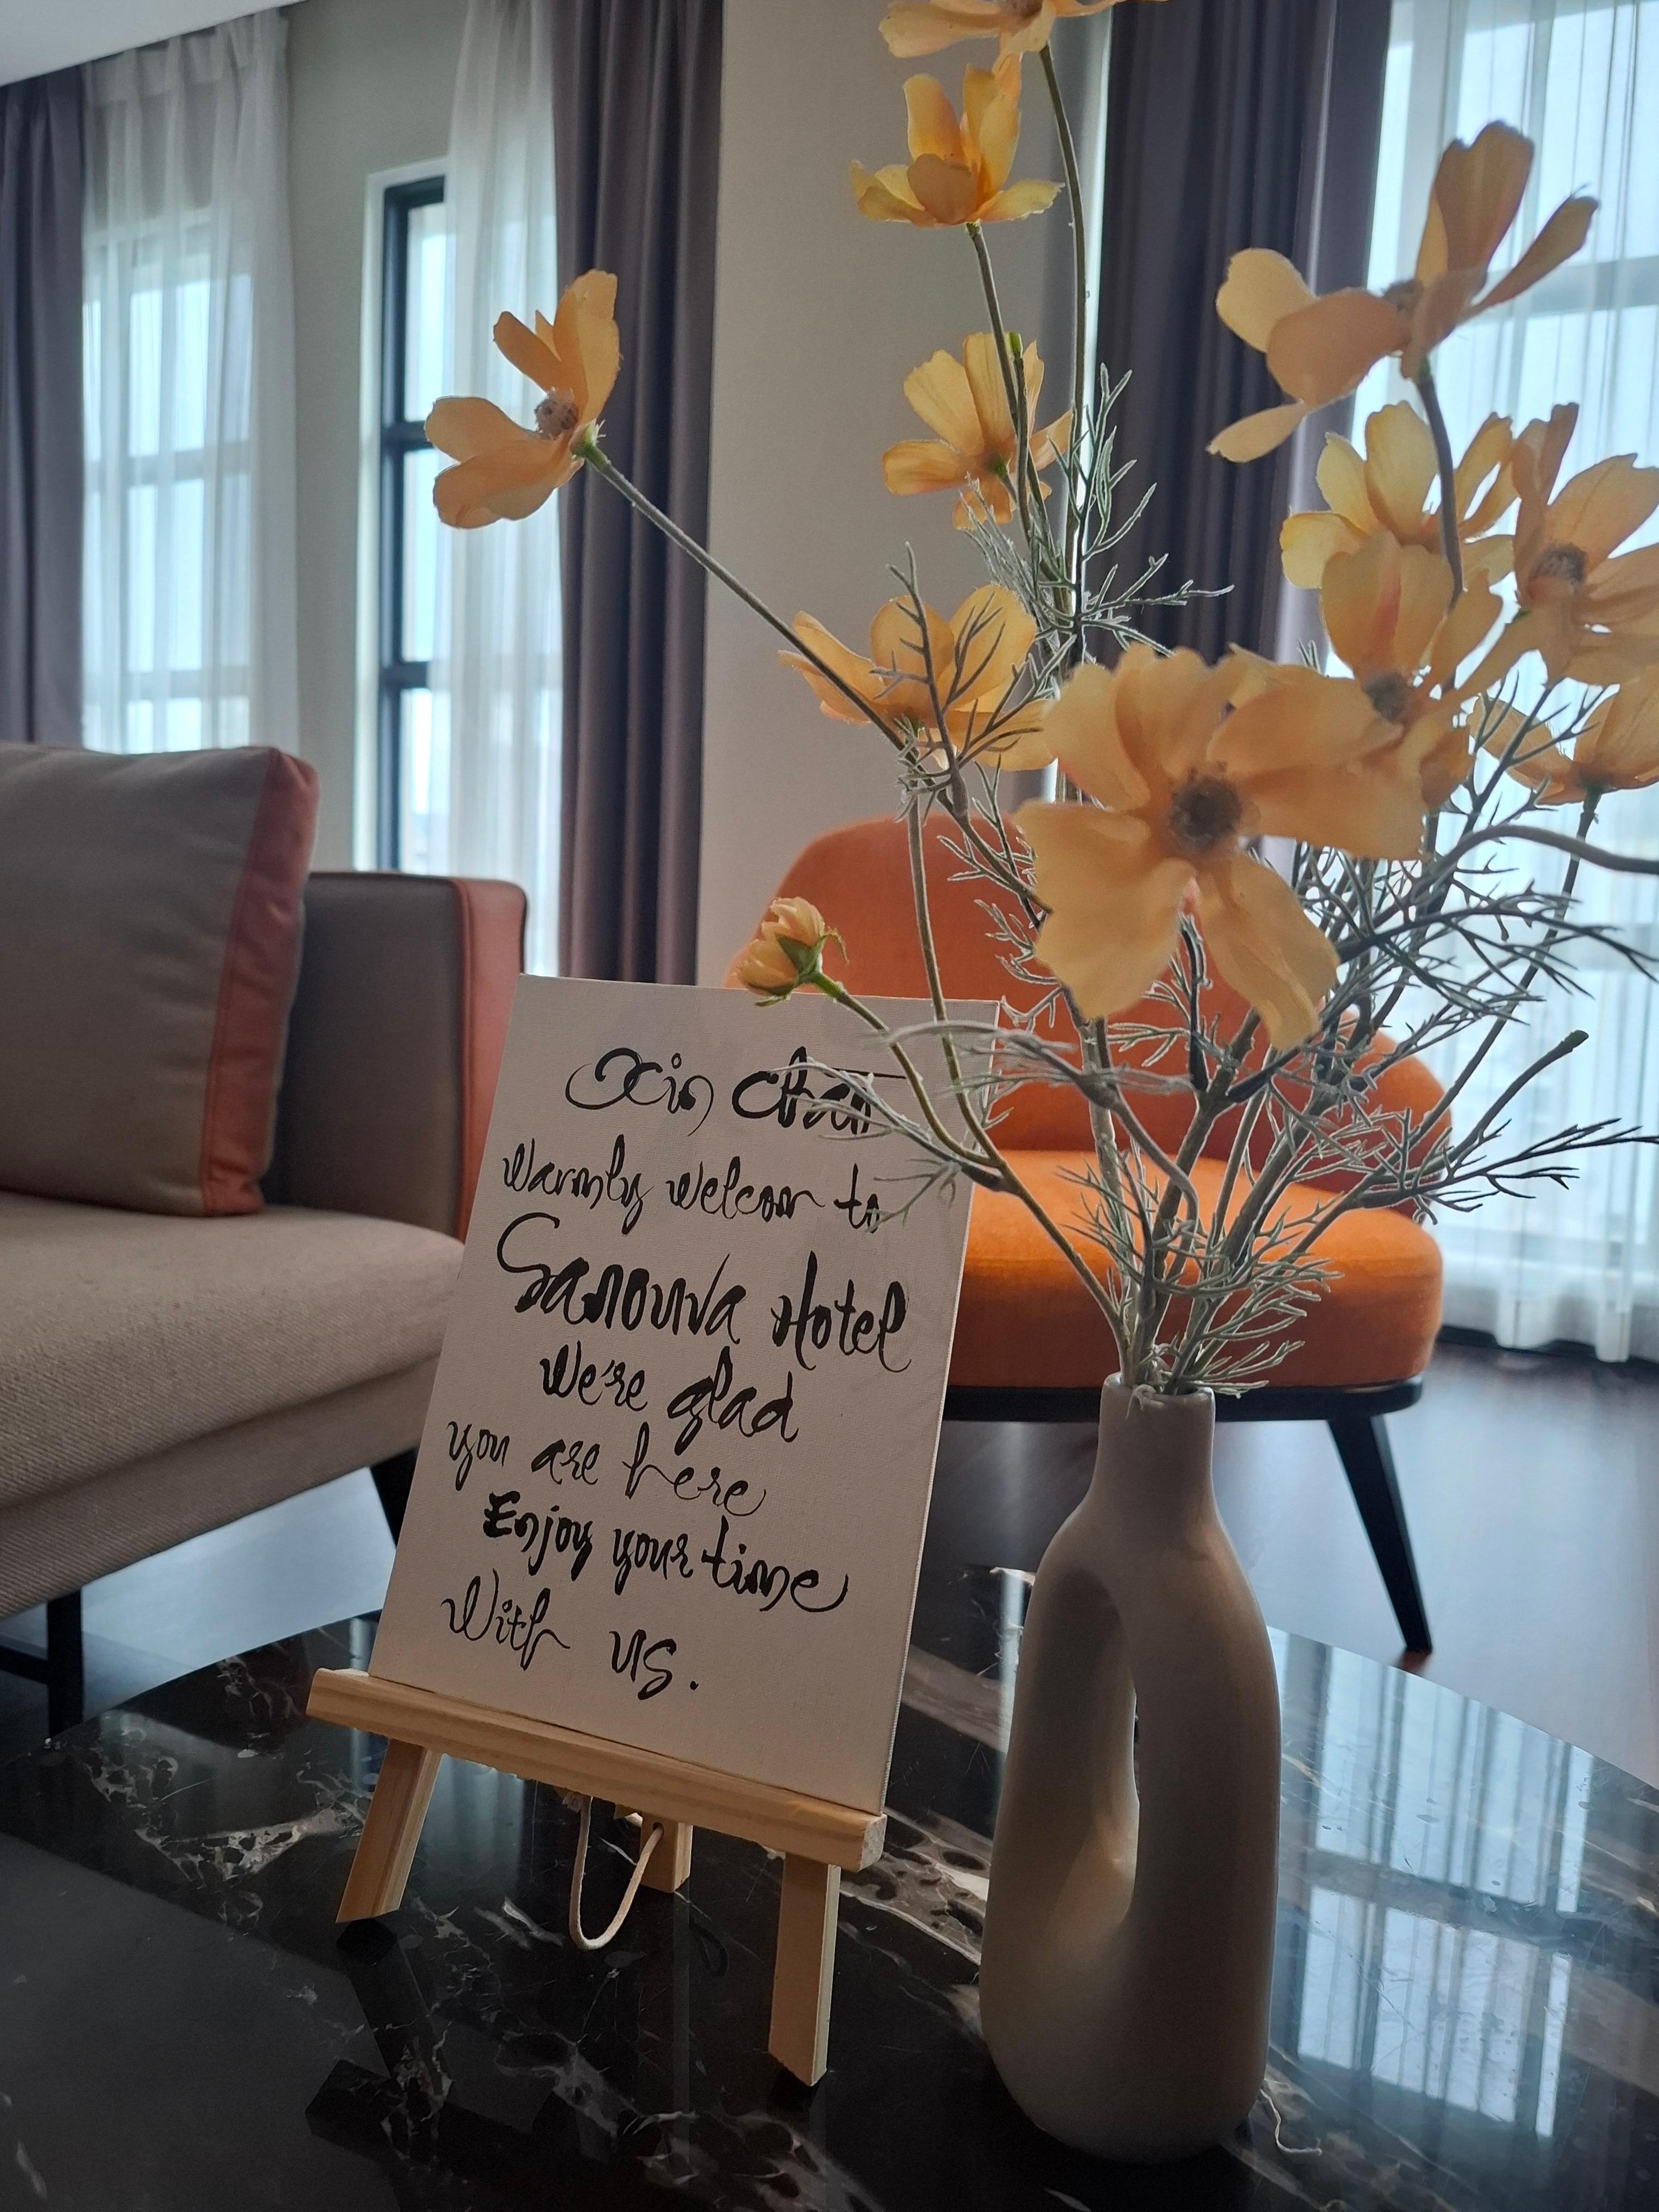 Xin chào
Warmly Welcom to
Sanouva Hotel
We're glad
you are here
Enjoy your time
With us.